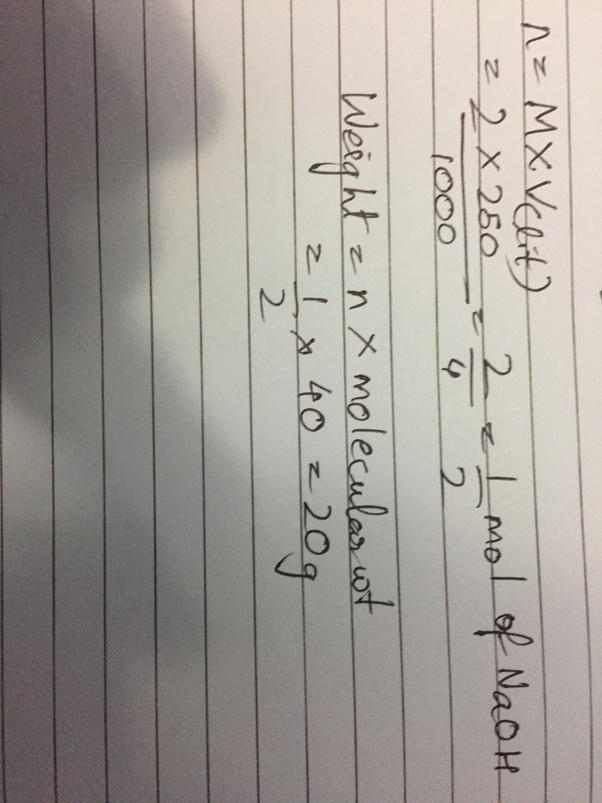 n = M x V(lit)
= 2 x 250 / 1000 = 2/4 = 1/2 mol of NaOH
Weight = n x molecular wt
= 1/2 x 40 = 20g